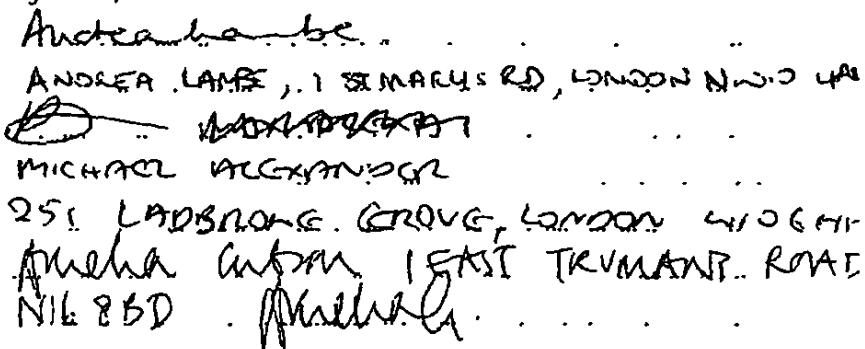 Andrea Lambe
ANDREA LAMBE, 1 ST MARYS RD, LONDON NW10
MICHAEL ALEXANDER
251 LADBROKE GROVE, LONDON W10 6
Amelia 1 EAST ROAD
N16 8BD